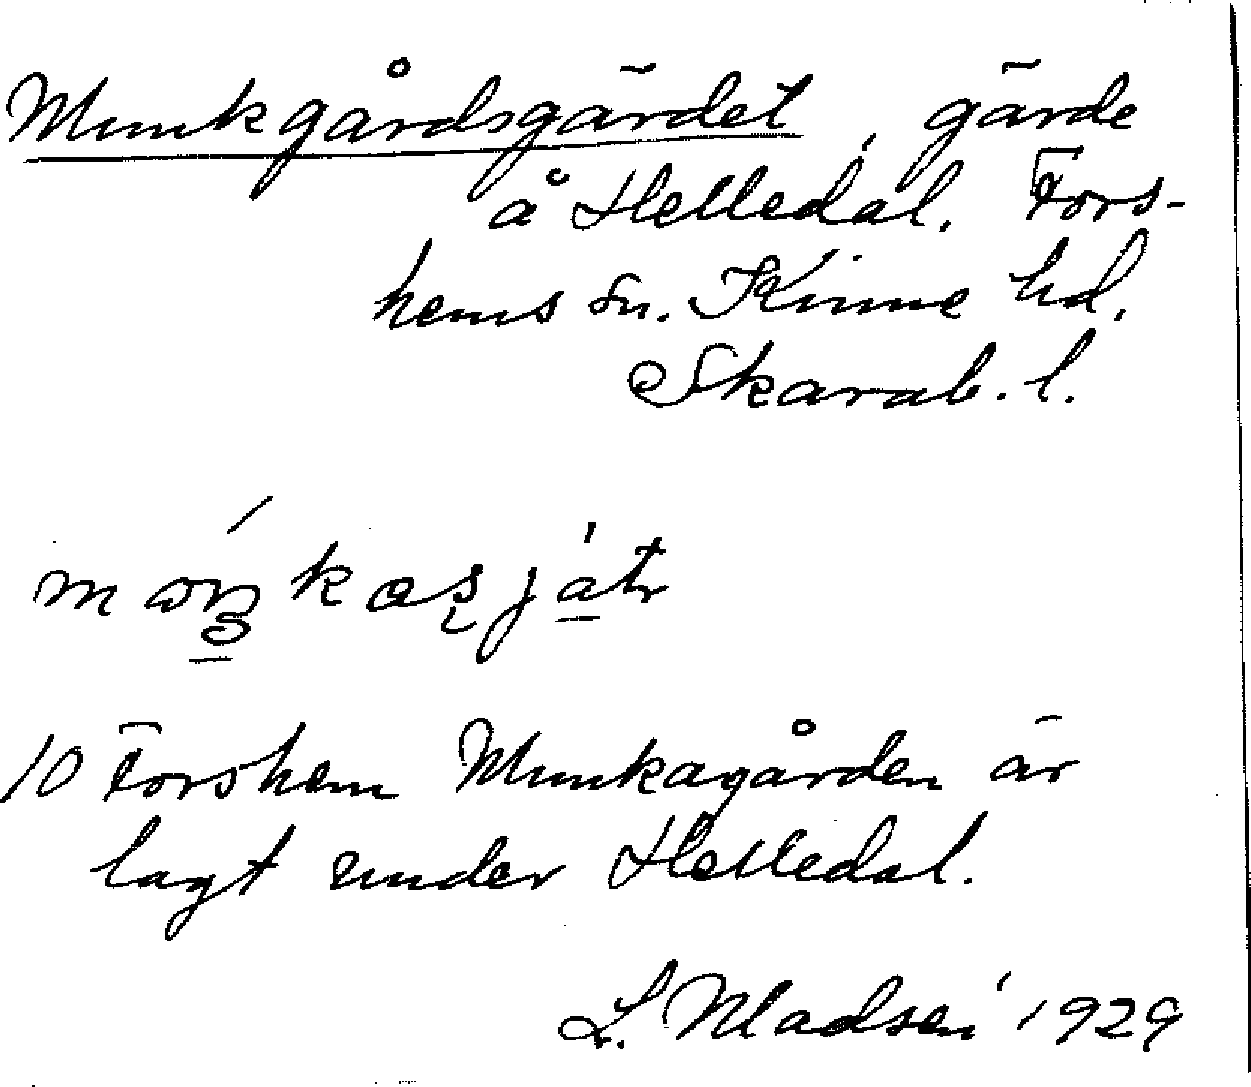 Munkgårdsgärdet, gärde
å Helledal. Fors-
hems sn. Kinne hd.
Skarab. l.
10 Forshem Munkagården är
lagt under Helledal.
L. Madsen 1929